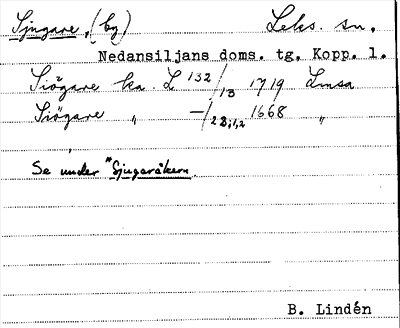 Sjugare, (by) Leks. sn.
Nedansiljans doms. tg. Kopp. l.
Siögare ka. L 132/13 1719 Lmsa
Siögare " —/23,1,2 1668 "
Se under "Sjugareåkern.
B. Lindén